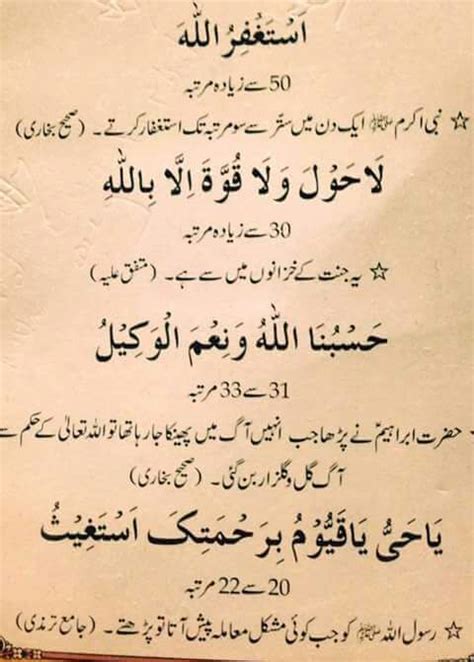 اَسْتَغْفِرُ اللّٰہ
50 سے زیادہ مرتبہ
☆ نبی اکرم ﷺ ایک دن میں ستّر سے سو مرتبہ تک استغفار کرتے۔ (صحیح بخاری)
لَا حَوْلَ وَلَا قُوَّةَ اِلَّا بِاللّٰهِ
30 سے زیادہ مرتبہ
☆ یہ جنت کے خزانوں میں سے ہے۔ (متفق علیہ)
حَسْبُنَا اللّٰهُ وَنِعْمَ الْوَكِيْلُ
31 سے 33 مرتبہ
حضرت ابراہیمؑ نے پڑھا جب انہیں آگ میں پھینکا جا رہا تھا تو اللہ تعالیٰ کے حکم سے
آگ گل و گلزار بن گئی۔ (صحیح بخاری)
يَا حَيُّ يَا قَيُّوْمُ بِرَحْمَتِكَ اَسْتَغِيْثُ
20 سے 22 مرتبہ
☆ رسول اللہ ﷺ کو جب کوئی مشکل معاملہ پیش آتا تو پڑھتے۔ (جامع ترمذی)